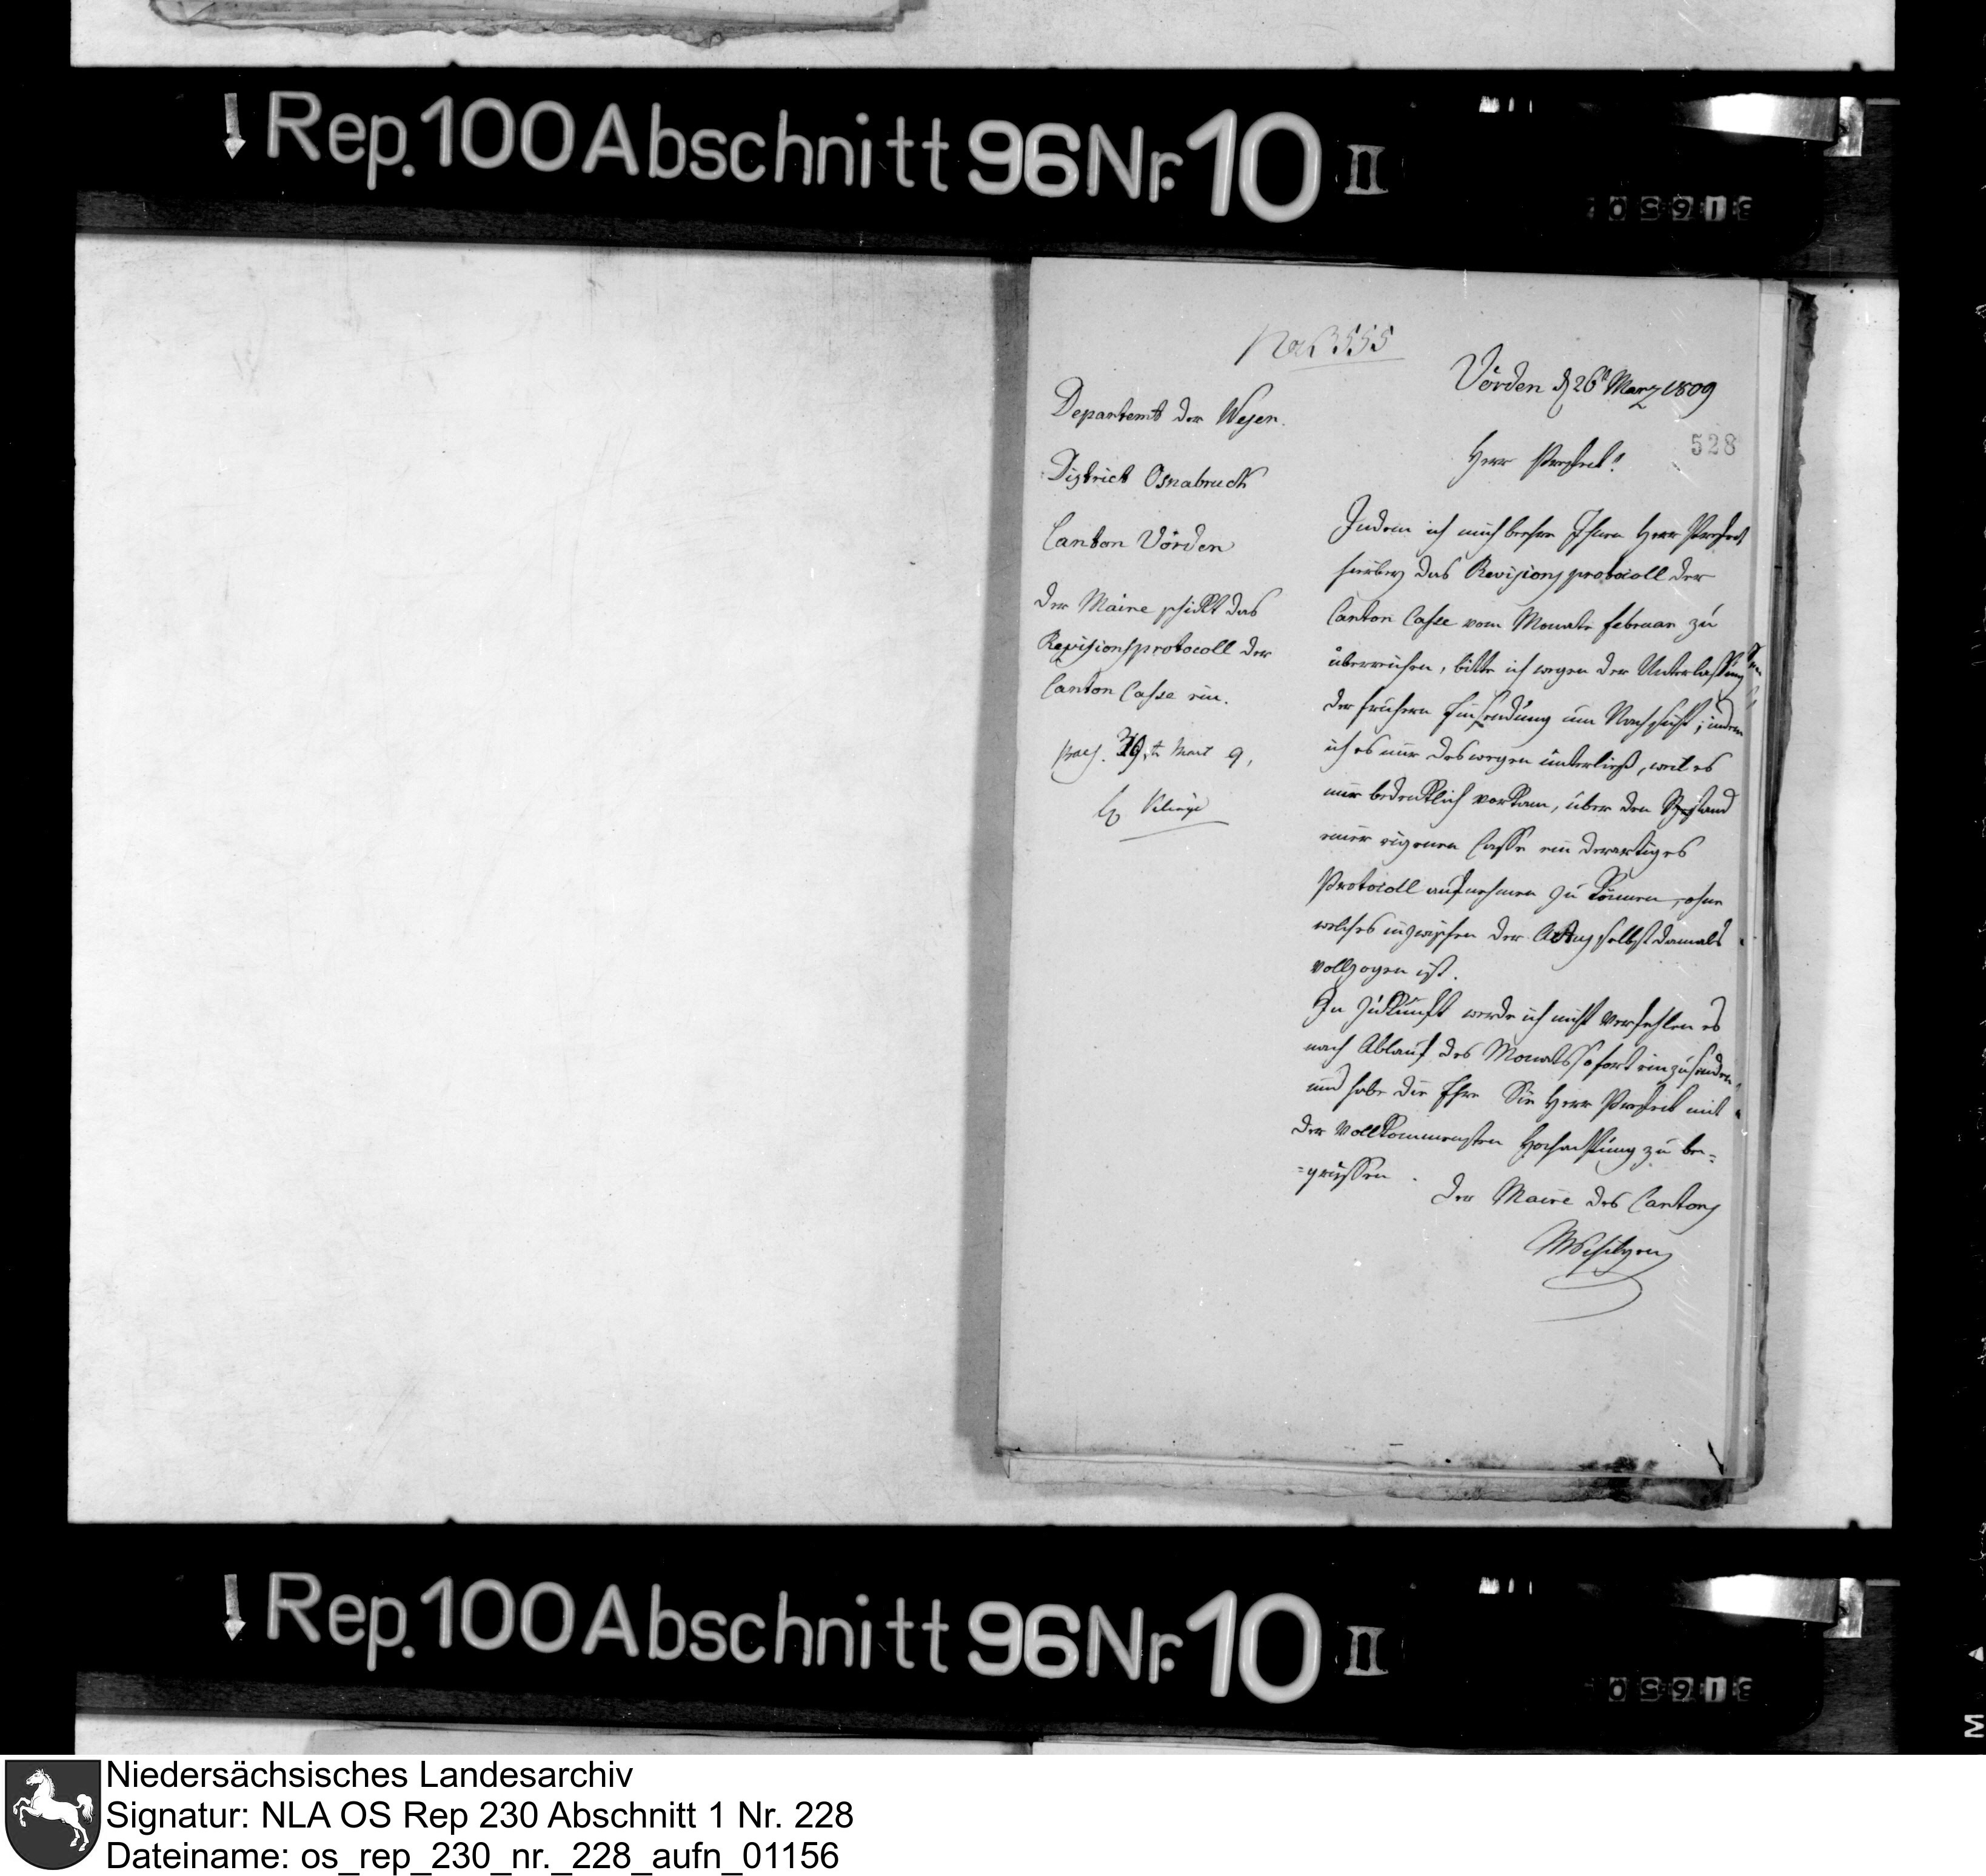 Rep. 100 Abschnitt 96 Nr. 10 II
No 3555
Vörden d 26t Marz 1809
528
Departemt der Weser.
District Osnabruck
Canton Vörden
Der Maire schickt das
Revisionsprotocoll der
Canton Casse ein.
praes. 30.t Mart 9,
Herr Praefect!
Indem ich mich beehre Ihnen Herr Praefect
hierbey das Revisions protocoll der
Canton Casse vom Monate Februar zu
überreichen, bitte ich wegen der Unterlassung
der frühern Einsendung um Nachsicht; indem
ich es nur deswegen unterließ, weil es
mir bedenklich vorkam, über den Bestand
einer eigenen Casse ein derartiges
Protocoll aufnehmen zu können, ohne
welches inzwischen der Actus selbst damals
vollzogen ist.
In Zukunft werde ich nicht verfehlen es
nach Ablauf des Monats sofort einzusenden
und habe die Ehre Sie Herr Praefect mit
der vollkommensten Hochachtung zu be=
=grüssen.
Der Maire des Cantons
Rep. 100 Abschnitt 96 Nr. 10 II
Niedersächsisches Landesarchiv
Signatur: NLA OS Rep 230 Abschnitt 1 Nr. 228
Dateiname: os_rep_230_nr._228_aufn_01156